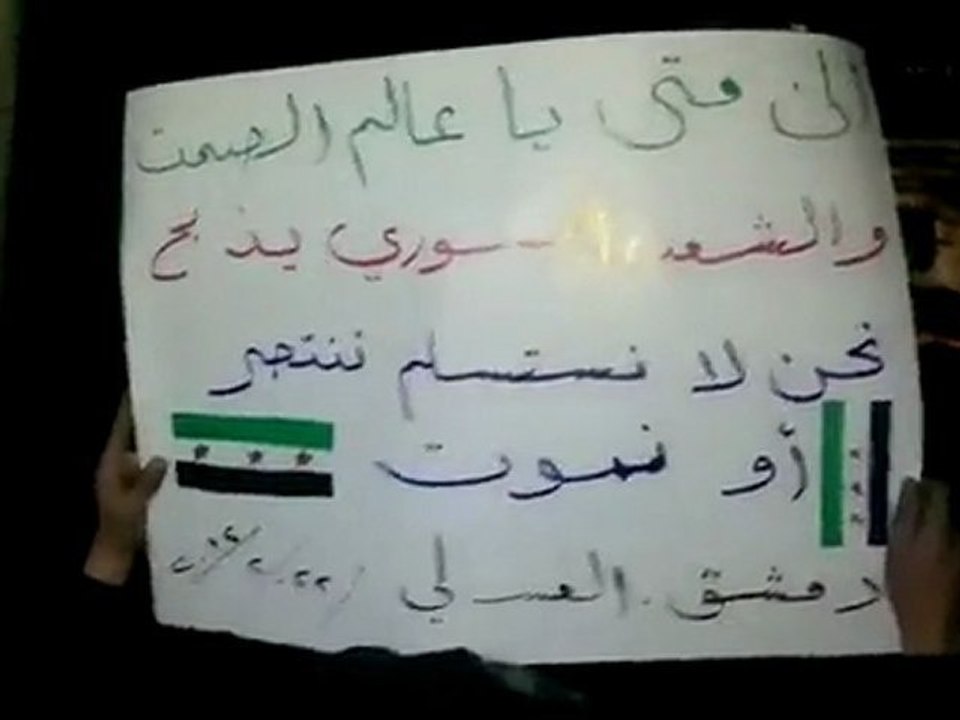 الى متى يا عالم الصمت
والشعب السوري يذبح
نحن لا نستسلم ننتصر
أو نموت
دمشق . العسالي